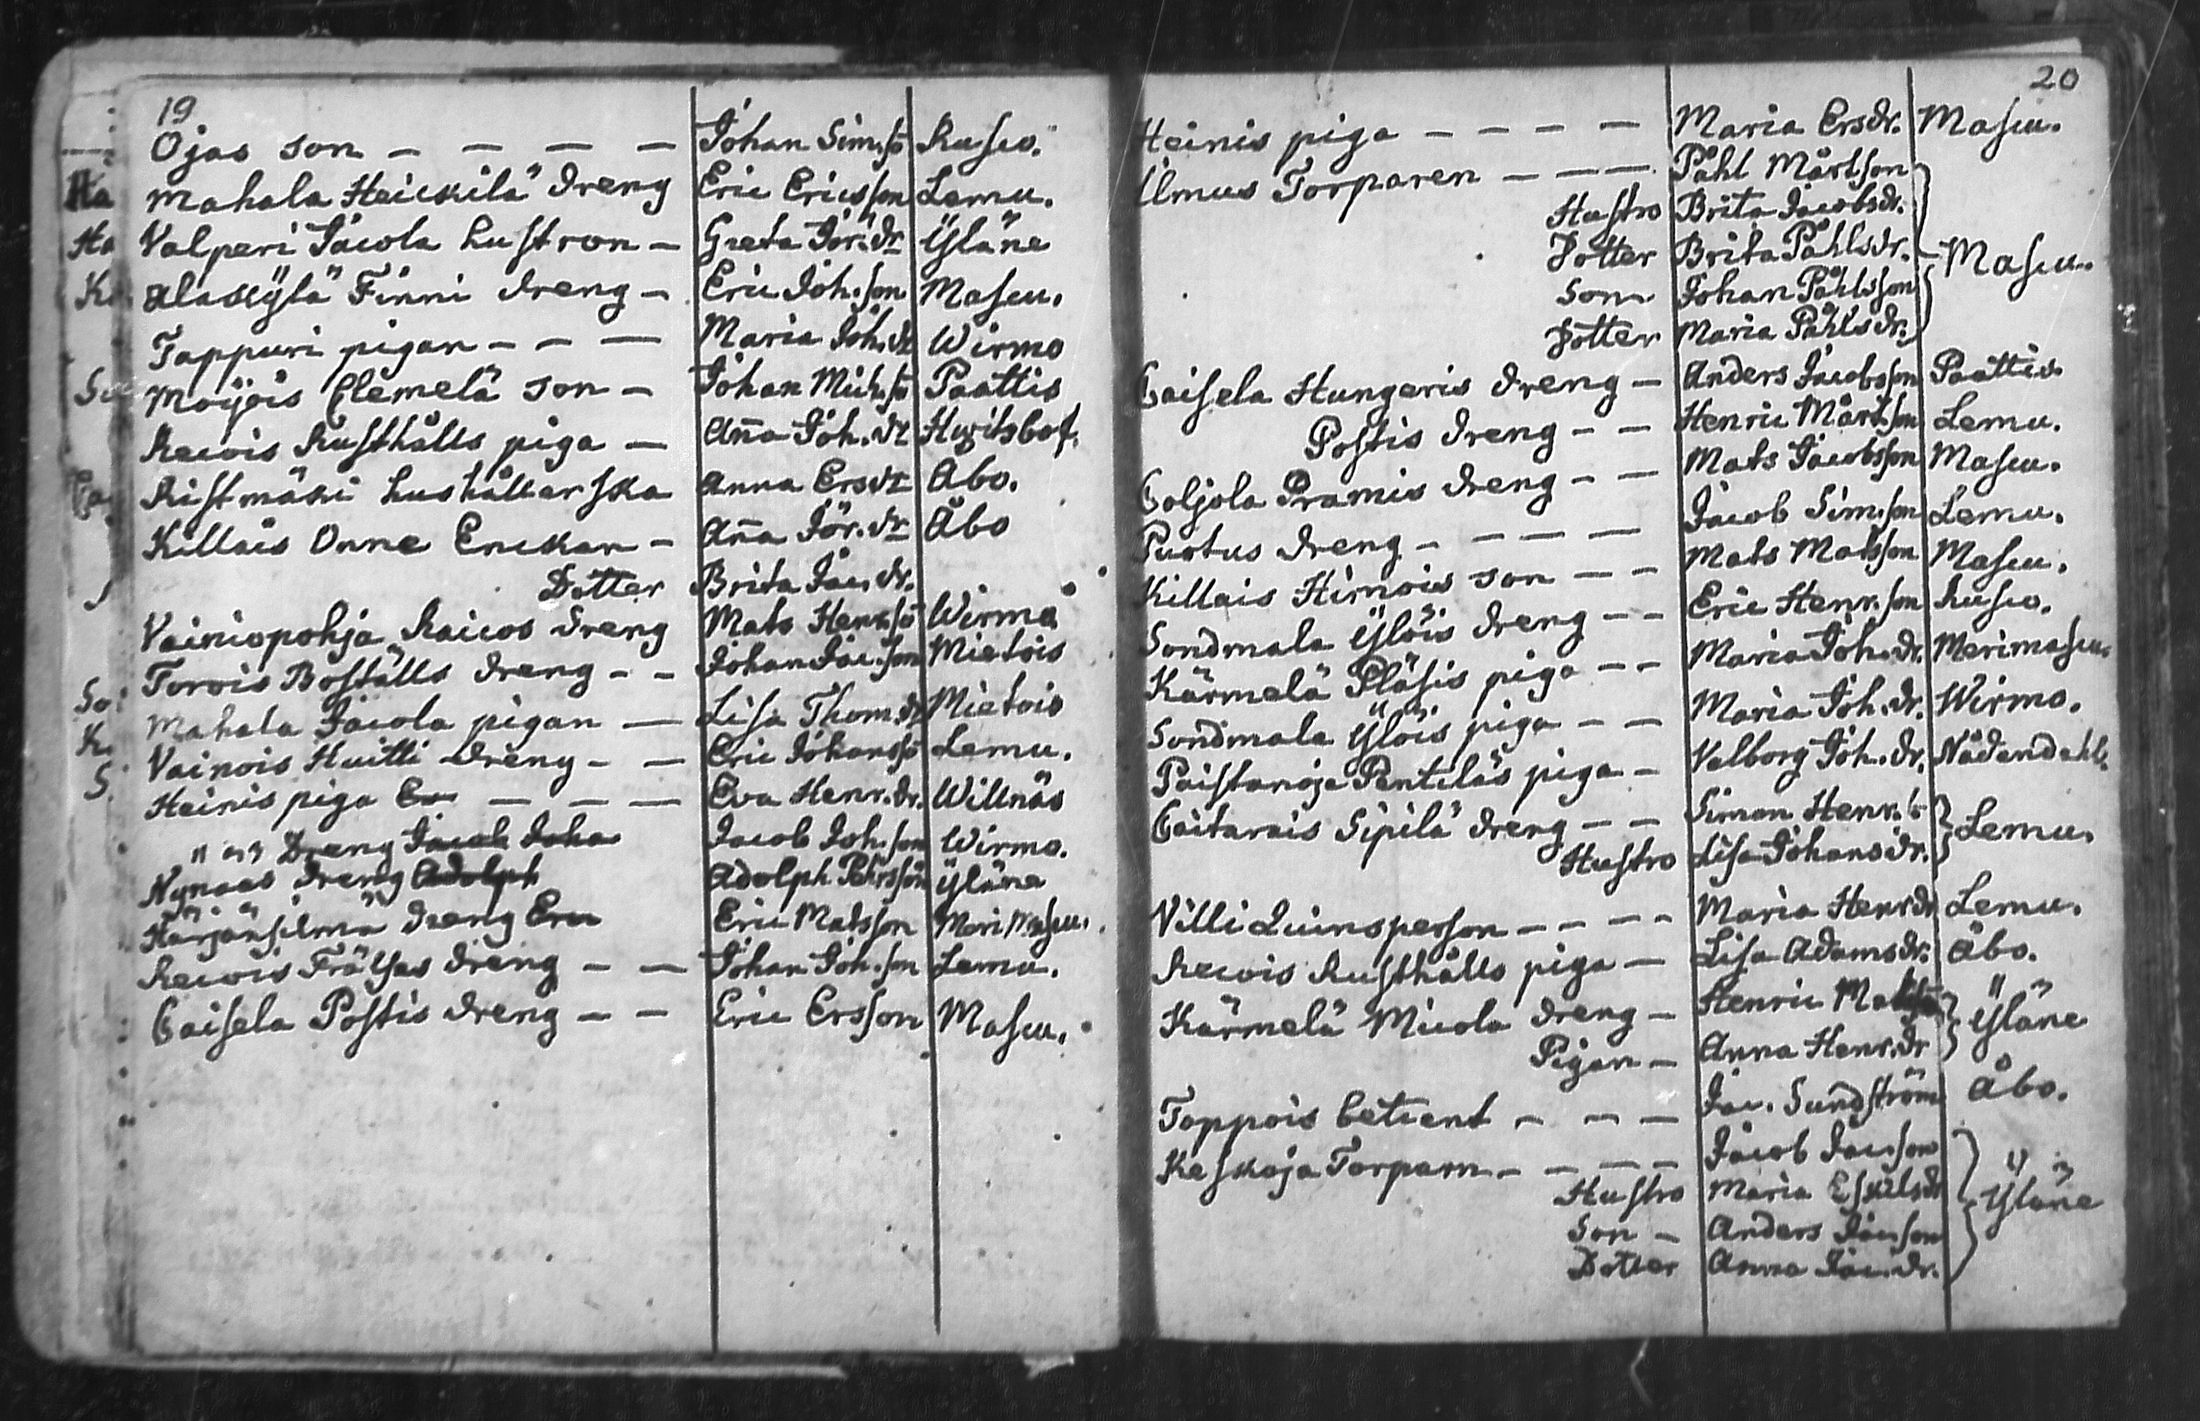 19
Ojas son — — — — Johan Sim.sō Rusco.
Mahala Heickilä dreng Eric Ericsson Lemu.
Valperi Jacola hustron — Greta Jör.dr Yläne
Alaskylä Finni dreng — Eric Joh.son Mascu.
Tappuri pigan — — — Maria Joh.dr Wirmo
Moijois Clemelä son — Johan Mich.sō Paattis
Recois Rusthålls piga — Ana Joh.dr Hvitsbof.
Ristmäki hushållerska Anna Ersdr Åbo.
Killais Onne Enckan — Ana Jör.dr Åbo
Dotter Brita Jac.dr.
Vainiopohja Raicos dreng Mats Henr.sō Wirmo
Torois Boställs dreng — — Johan Jac.son Mietois
Mahala Jacola pigan — Lisa Thom.dr Mietois
Vainois Huitti dreng — — Eric Johanssō Lemu.
Heinis piga Ev — — — Eva Henr.dr. Willnäs
" " Dreng Jacob Joha Jacob Joh.son Wirmo.
Nynäes dreng Adolph Adolph Pehrsson Yläne
Härjänsilmä dreng Eric Eric Matsson Meri Mascu.
Recois Frälses dreng — — Johan Joh.son Lemu.
Caisela Postis dreng — — Eric Ersson Mascu.
20
Heinis piga — — — — Maria Ersdr. Mascu.
Ilmus Torparen — — — Påhl Mårtson
Hustro Brita Jacobsdr.
Dotter Brita Påhlsdr. Mascu.
Son Johan Påhlsson
Dotter Maria Påhlsdr.
Caisela Hungeris dreng — Anders Jacobsson Paattis
Postis dreng — — Henric Mårt.son Lemu.
Coljola Pramis dreng — — Mats Jacobsson Mascu.
Puotus dreng — — — — Jacob Sim.son Lemu.
Killais Hirnois son — — Mats Matsson Mascu.
Sondmala Ylöis dreng — — Eric Henr.son Rusco.
Kärmelä Pläsis piga — — Maria Joh.dr. Merimascu.
Sondmala Ylöis piga — — Maria Joh.dr. Wirmo.
Paistanoja Pentiläs piga — Valborg Joh.dr. Nådendahl.
Caitarais Sipilä dreng — — Simon Henr.s
Hustro Lisa Johansdr. Lemu.
Villi Quinsperson — — — Maria Henr.dr Lemu.
Recois Rusthålls piga — Lisa Adamsdr. Åbo.
Kärmelä Micola dreng — Henric Matsson
Pigan — Anna Henr.dr Yläne
Toppois betient — — — Jac. Sundström Åbo.
Keskoja Torparn — — — — Jacob Jac.son
Hustro Maria Eskilsdr Yläne
Son — Anders Jac.son
Dotter Anna Jac.dr.